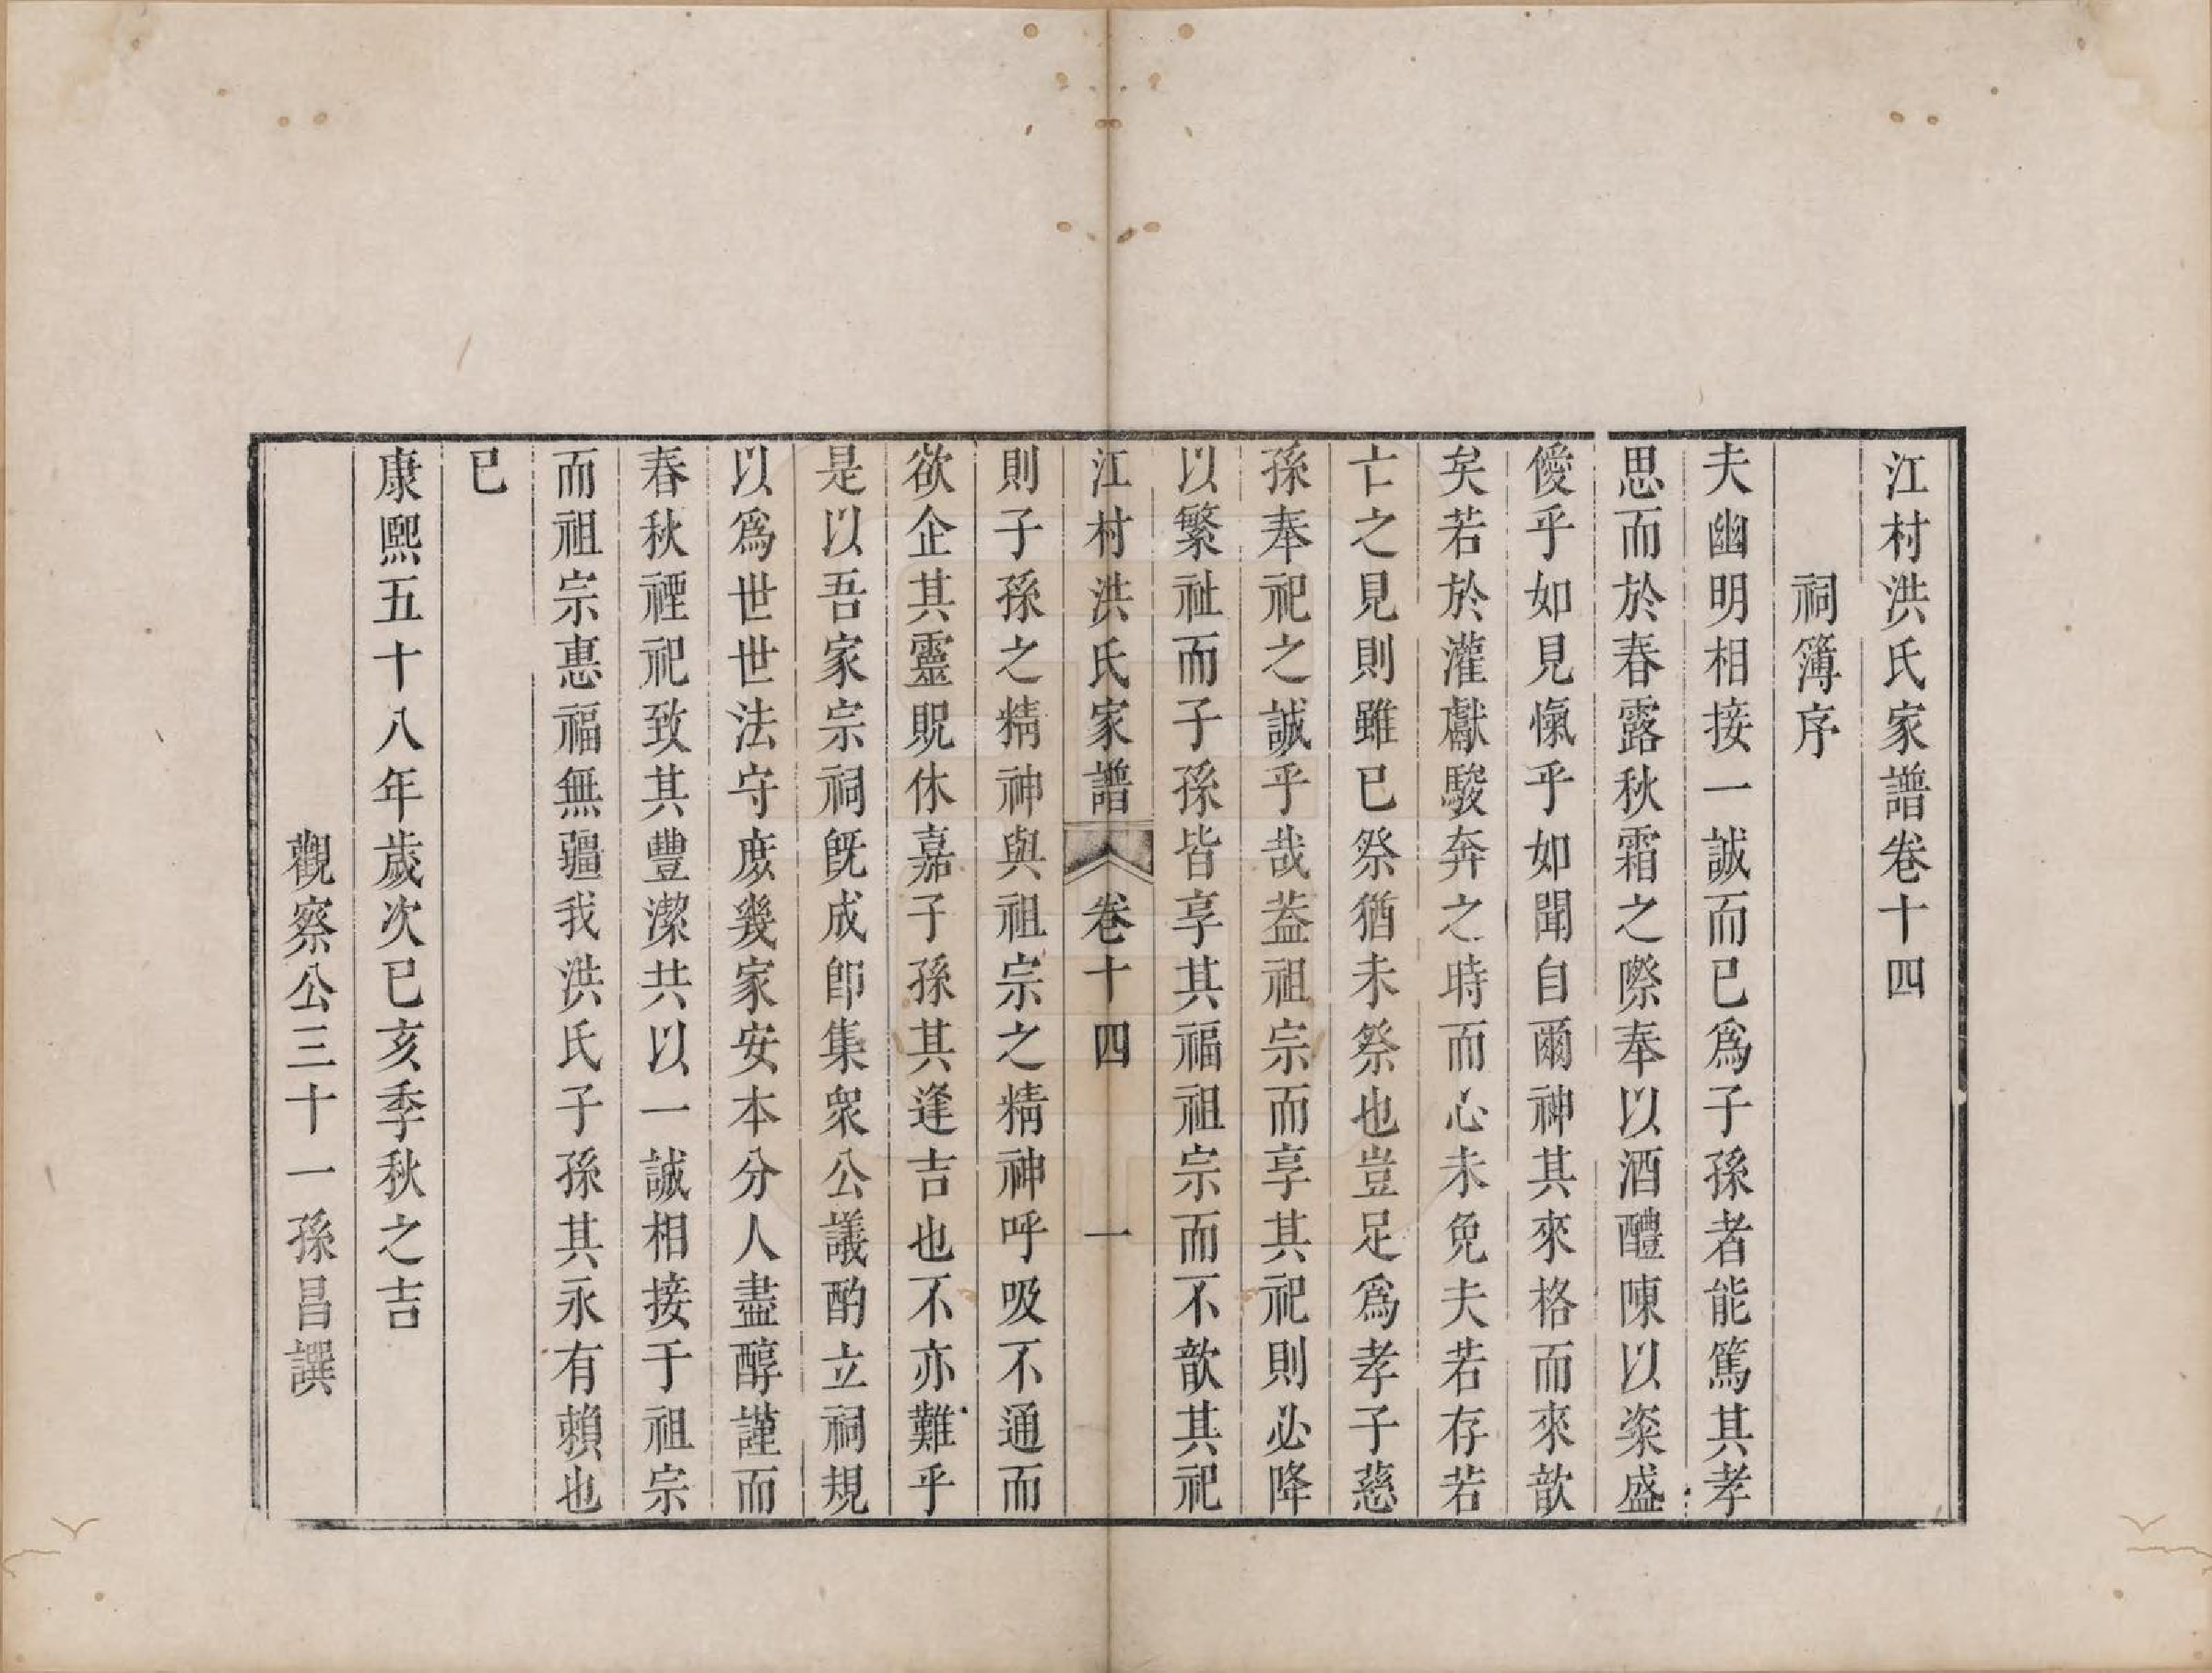 江村洪氏家譜卷十四
祠簿序
夫幽明相接一誠而已爲子孫者能篤其孝
思而於春露秋霜之際奉以酒醴陳以粢盛
僾乎如見愾乎如聞自爾神其來格而來歆
矣若於灌獻駿奔之時而心未免夫若存若
亡之見則雖已祭猶未祭也豈足爲孝子慈
孫奉祀之誠乎哉葢祖宗而享其祀則必降
以繁祉而子孫皆享其福祖宗而不歆其祀
江村洪氏家譜 卷十四 一
則子孫之精神與祖宗之精神呼吸不通而
欲企其靈貺休嘉子孫其逢吉也不亦難乎
是以吾家宗祠旣成卽集衆公議酌立祠規
以爲世世法守庻幾家安本分人盡醇謹而
春秋禋祀致其豐潔共以一誠相接于祖宗
而祖宗惠福無疆我洪氏子孫其永有賴也
已
康熙五十八年歲次己亥季秋之吉
觀察公三十一孫昌譔